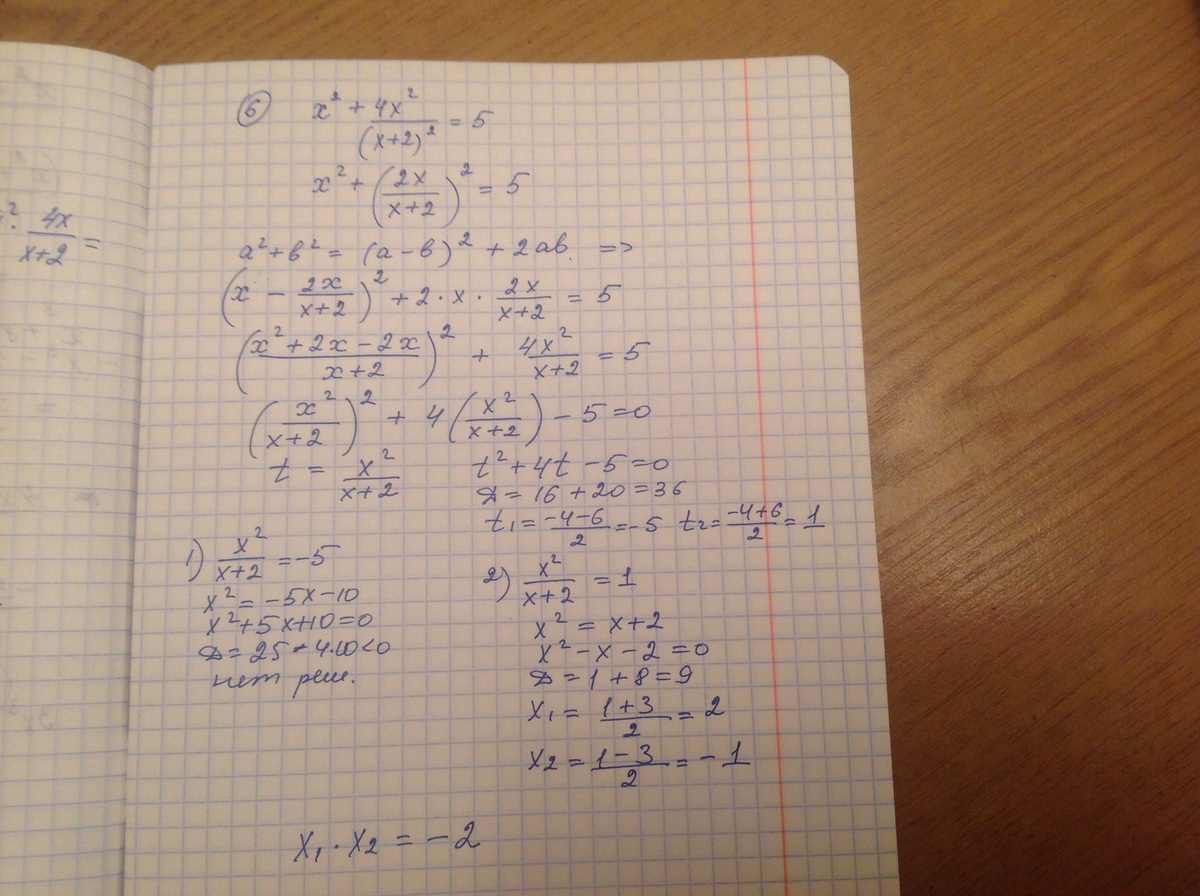 ⑥ x² + 4x²/(x+2)² = 5
x² + (2x/(x+2))² = 5
a² + b² = (a - b)² + 2ab. =>
(x - 2x/(x+2))² + 2·x·2x/(x+2) = 5
((x² + 2x - 2x)/(x+2))² + 4x²/(x+2) = 5
(x²/(x+2))² + 4(x²/(x+2)) - 5 = 0
t = x²/(x+2)
t² + 4t - 5 = 0
D = 16 + 20 = 36
t₁ = (-4-6)/2 = -5 t₂ = (-4+6)/2 = 1
1) x²/(x+2) = -5
x² = -5x - 10
x² + 5x + 10 = 0
D = 25 - 4·10 < 0
нет реш.
2) x²/(x+2) = 1
x² = x + 2
x² - x - 2 = 0
D = 1 + 8 = 9
x₁ = (1+3)/2 = 2
x₂ = (1-3)/2 = -1
x₁ · x₂ = -2
4x/(x+2) =